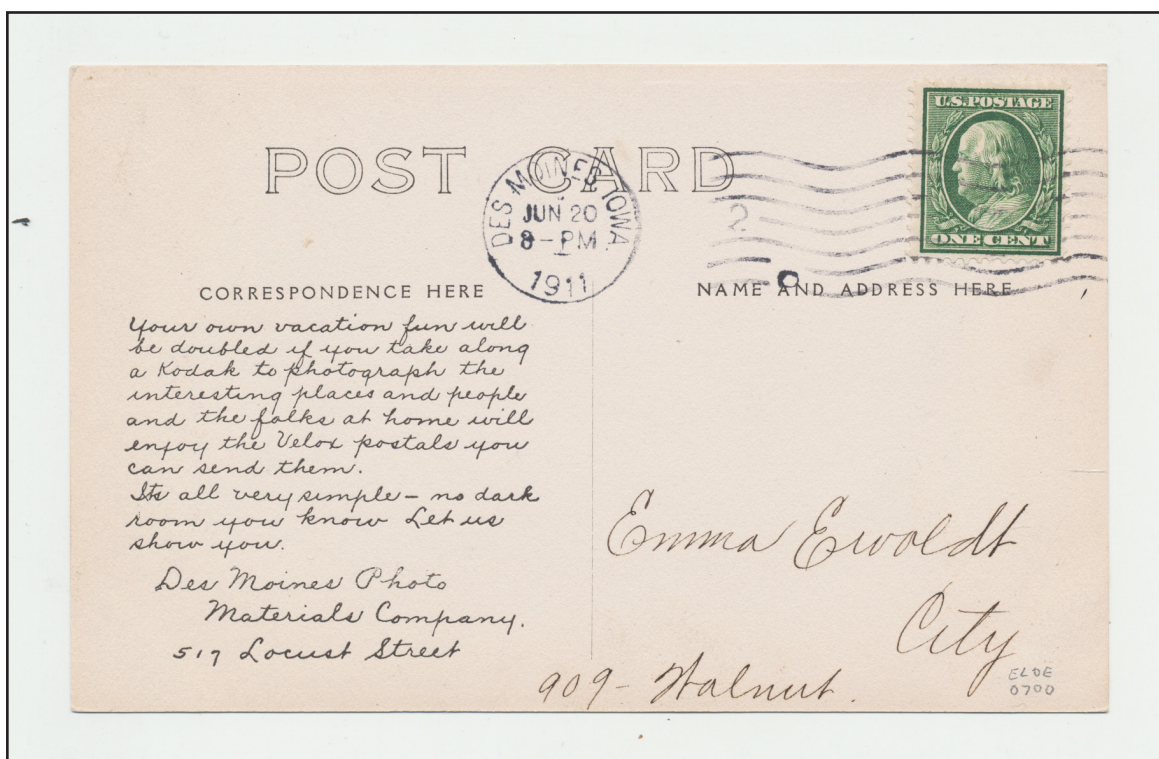 POST CARD
U.S. POSTAGE
ONE CENT
DES MOINES, IOWA
JUN 20
8 - PM
1911
2
CORRESPONDENCE HERE
Your own vacation fun will
be doubled if you take along
a Kodak to photograph the
interesting places and people
and the folks at home will
enjoy the Velox postals you
can send them.
Its all very simple – no dark
room you know Let us
show you.
Des Moines Photo
Materials Company.
517 Locust Street
NAME AND ADDRESS HERE
Emma Ewoldt
City
909 - Walnut.
ELDE
0700